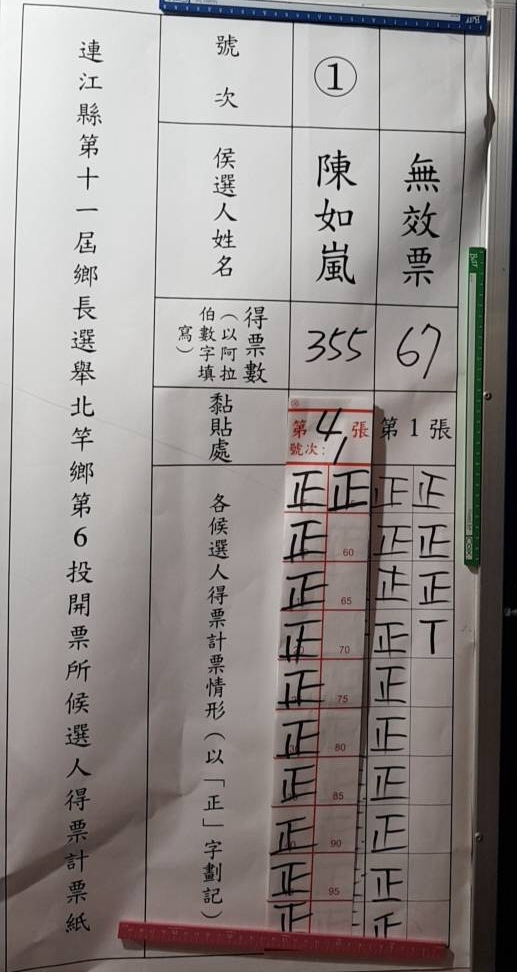 連江縣第十一屆鄉長選舉北竿鄉第6投開票所候選人得票計票紙
號次
①
候選人姓名
陳如嵐
無效票
得票數
（以阿拉伯數字填寫）
355
67
黏貼處
第4張
號次：1
第1張
各候選人得票計票情形（以「正」字劃記）
正 正 正 正
正 60 正 正
正 65 正 正
正 70 正 T
正 75 正
正 80 正
正 85 正
正 90 正
正 95 正
正 正